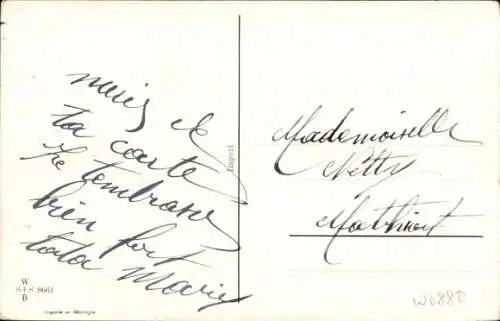 merci de
ta carte
Je tembrasse
bien fort
tata Marie
Import
Mademoiselle
Netty
Mathiot
W
S+S 8661
B
Imprimé en Allemagne
W6880